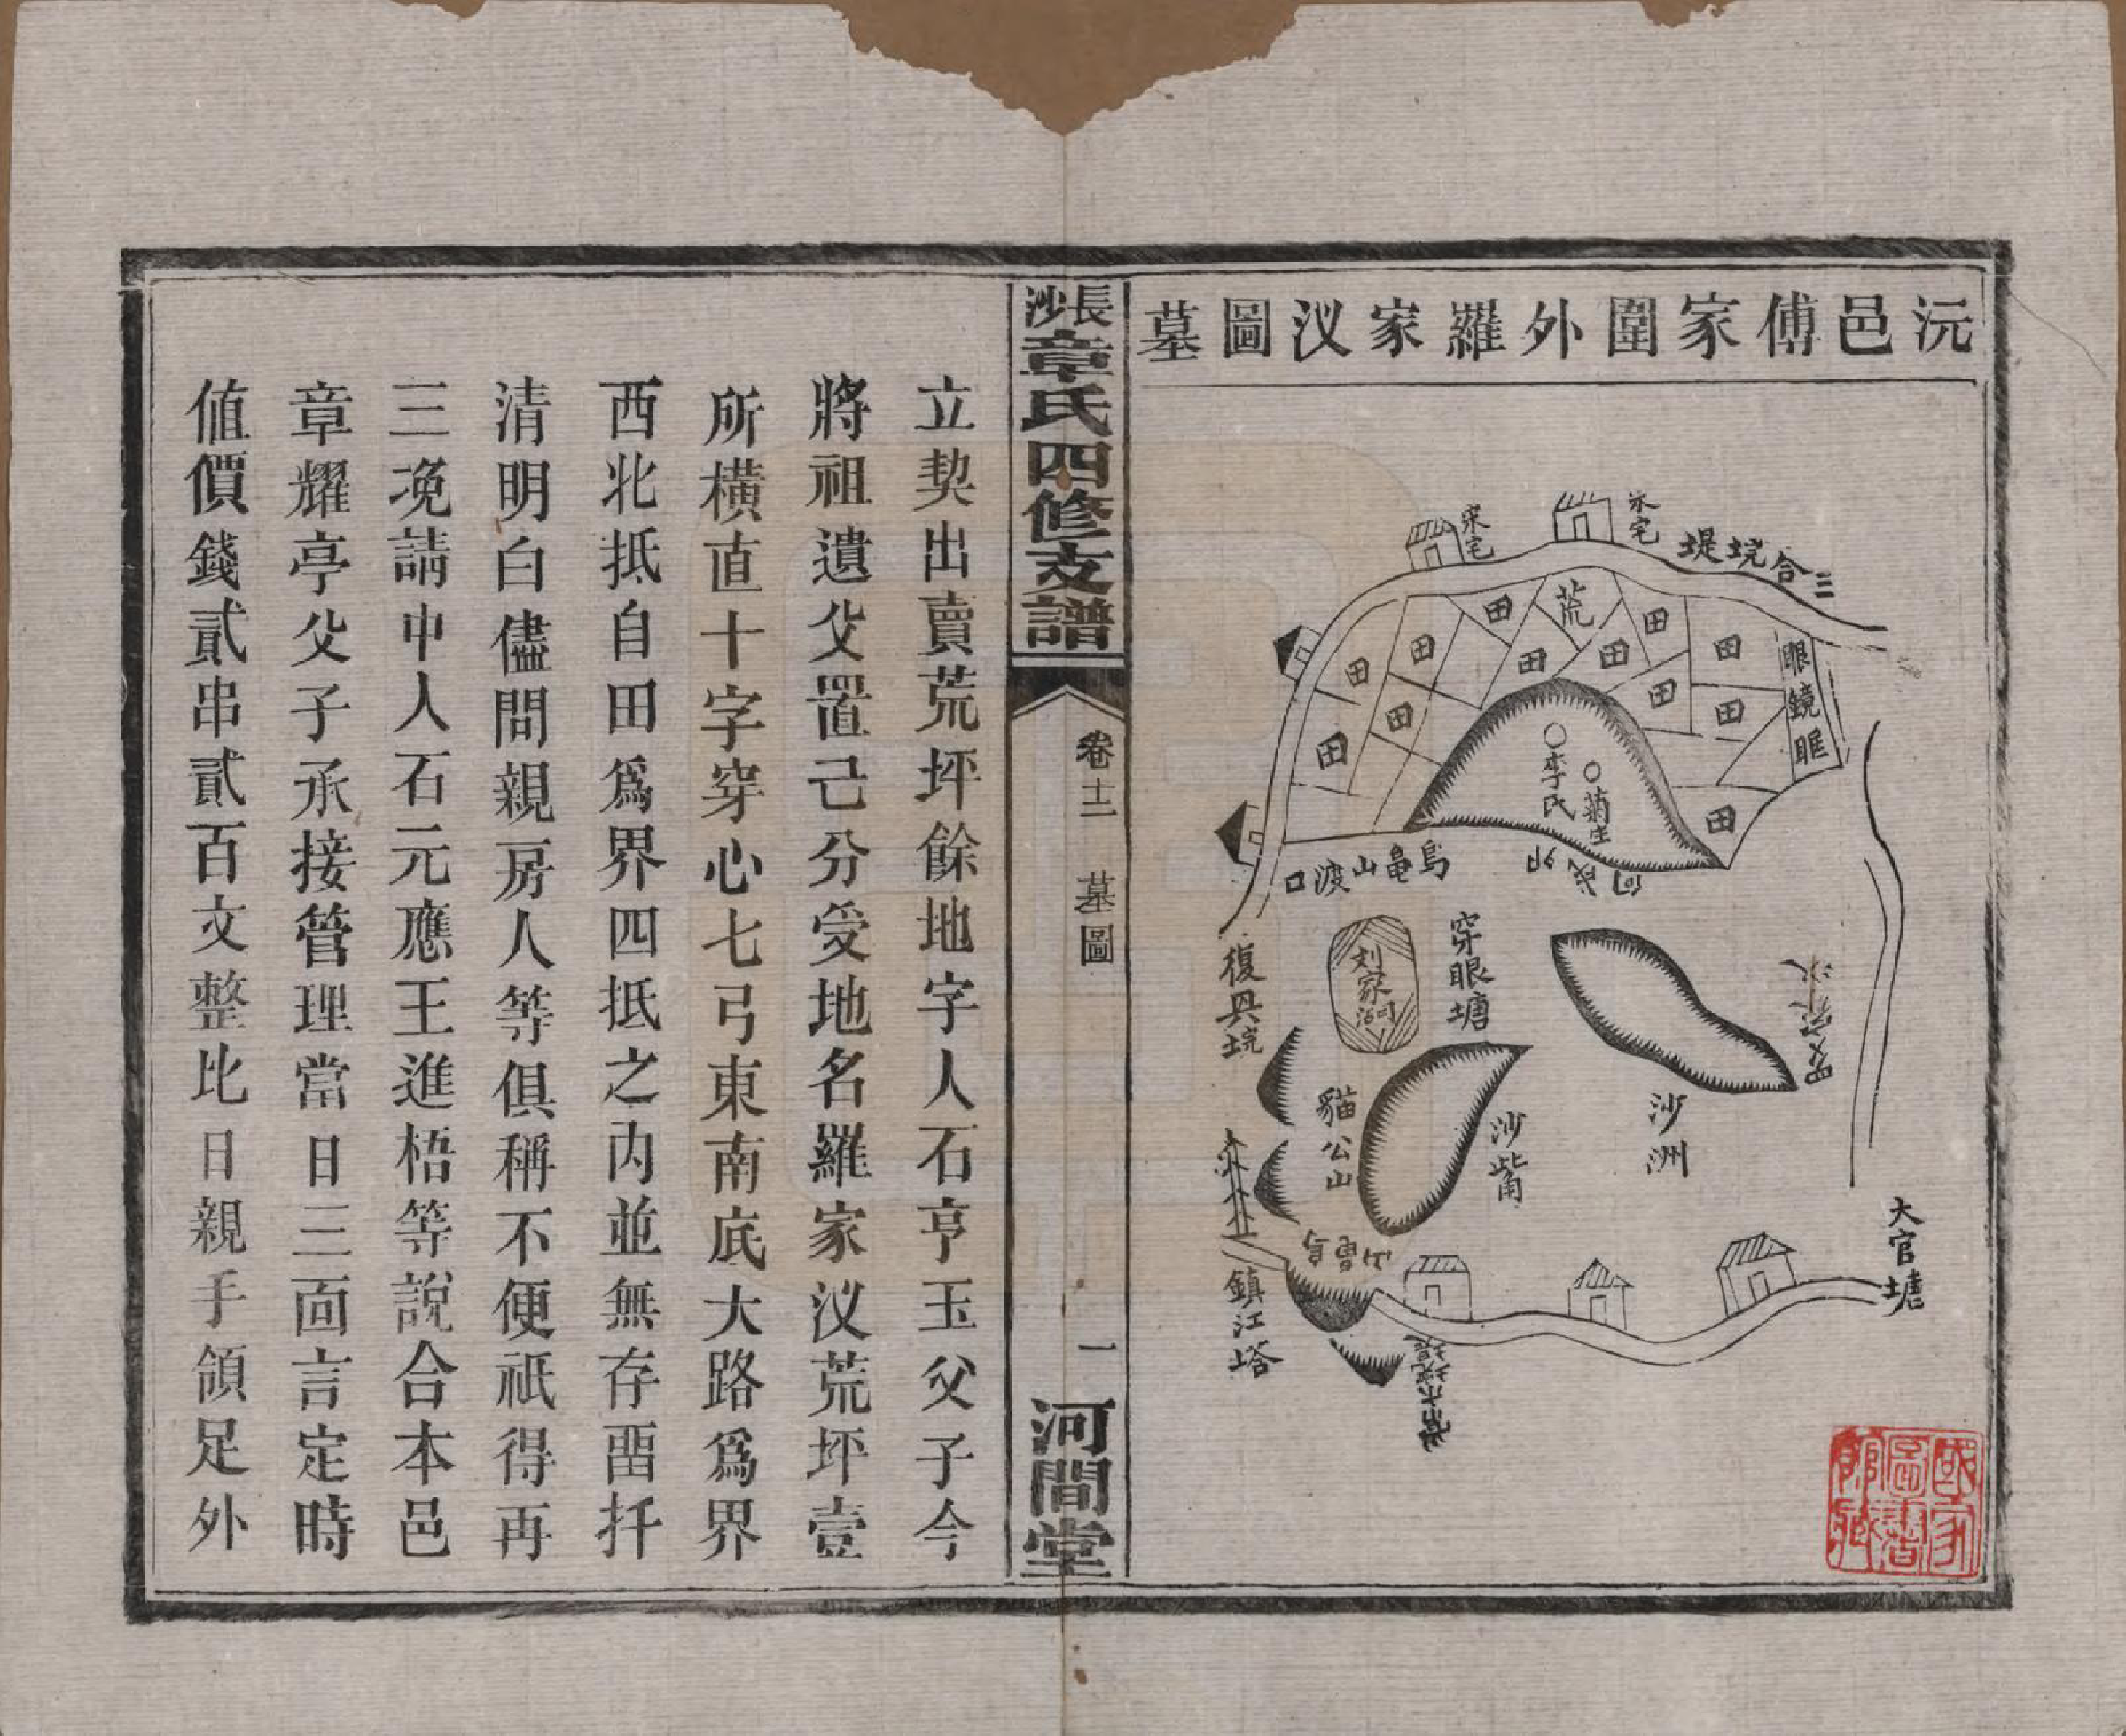 沅邑傅家圍外羅家汊圖墓
三合垸堤
宋宅
宋宅
荒
田
田
田
田
田
田
田
田
田
田
田
田
田
眼鏡眶
李氏
菊生
烏龜山渡口
復興垸
刘家河
穿眼塘
沙洲
沙嘴
貓公山
大官塘
鎮江塔
長沙章氏四修支譜
卷十二
墓圖
一
河間堂
立契出賣荒坪餘地字人石亨玉父子今
將祖遺父置己分受地名羅家汊荒坪壹
所橫直十字穿心七弓東南底大路爲界
西北抵自田爲界四抵之內並無存畱扦
清明白儘問親房人等俱稱不便祇得再
三浼請中人石元應王進梧等說合本邑
章耀亭父子承接管理當日三面言定時
値價錢貳串貳百文整比日親手領足外
國家圖書館藏